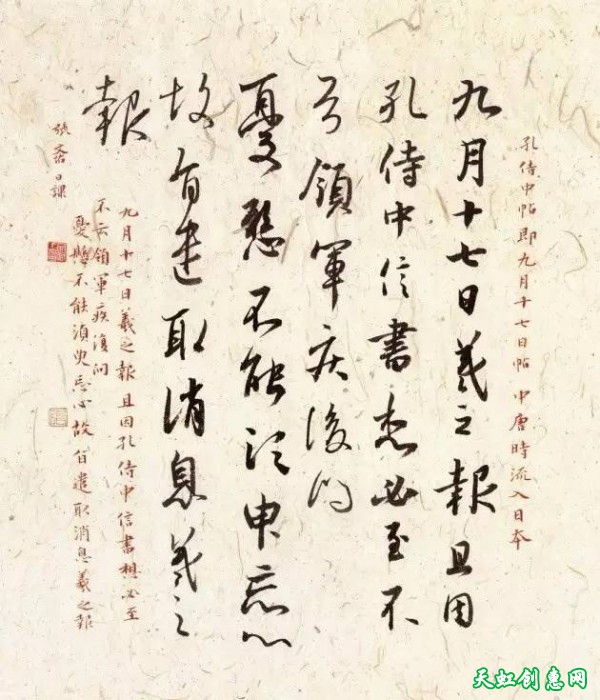 孔侍中帖即九月十七日帖 中唐時流入日本
九月十七日羲之報且因
孔侍中信書想必至不
知領軍疾後問
憂懸不能須臾忘心
故旨遣取消息羲之
報
九月十七日羲之報且因孔侍中信書想必至
不云領軍疾後問
憂懸不能須臾忘心故旨遣取消息羲之報
日課
天虹创惠网